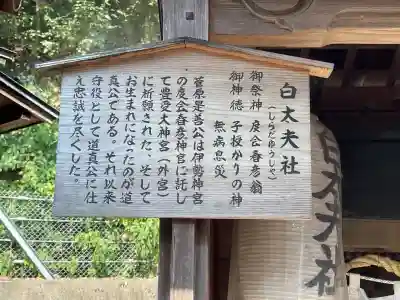 白太夫社
(しらだゆうしゃ)
御祭神 度会春彦翁
御神徳 子授かりの神
無病息災
菅原是善公は伊勢神宮
の度会春彦神官に託し
て豊受大神宮(外宮)
に祈願された、そして
お生まれになったのが道
真公である。それ以来
守役として道真公に仕
え忠誠を尽くした。
白太夫社